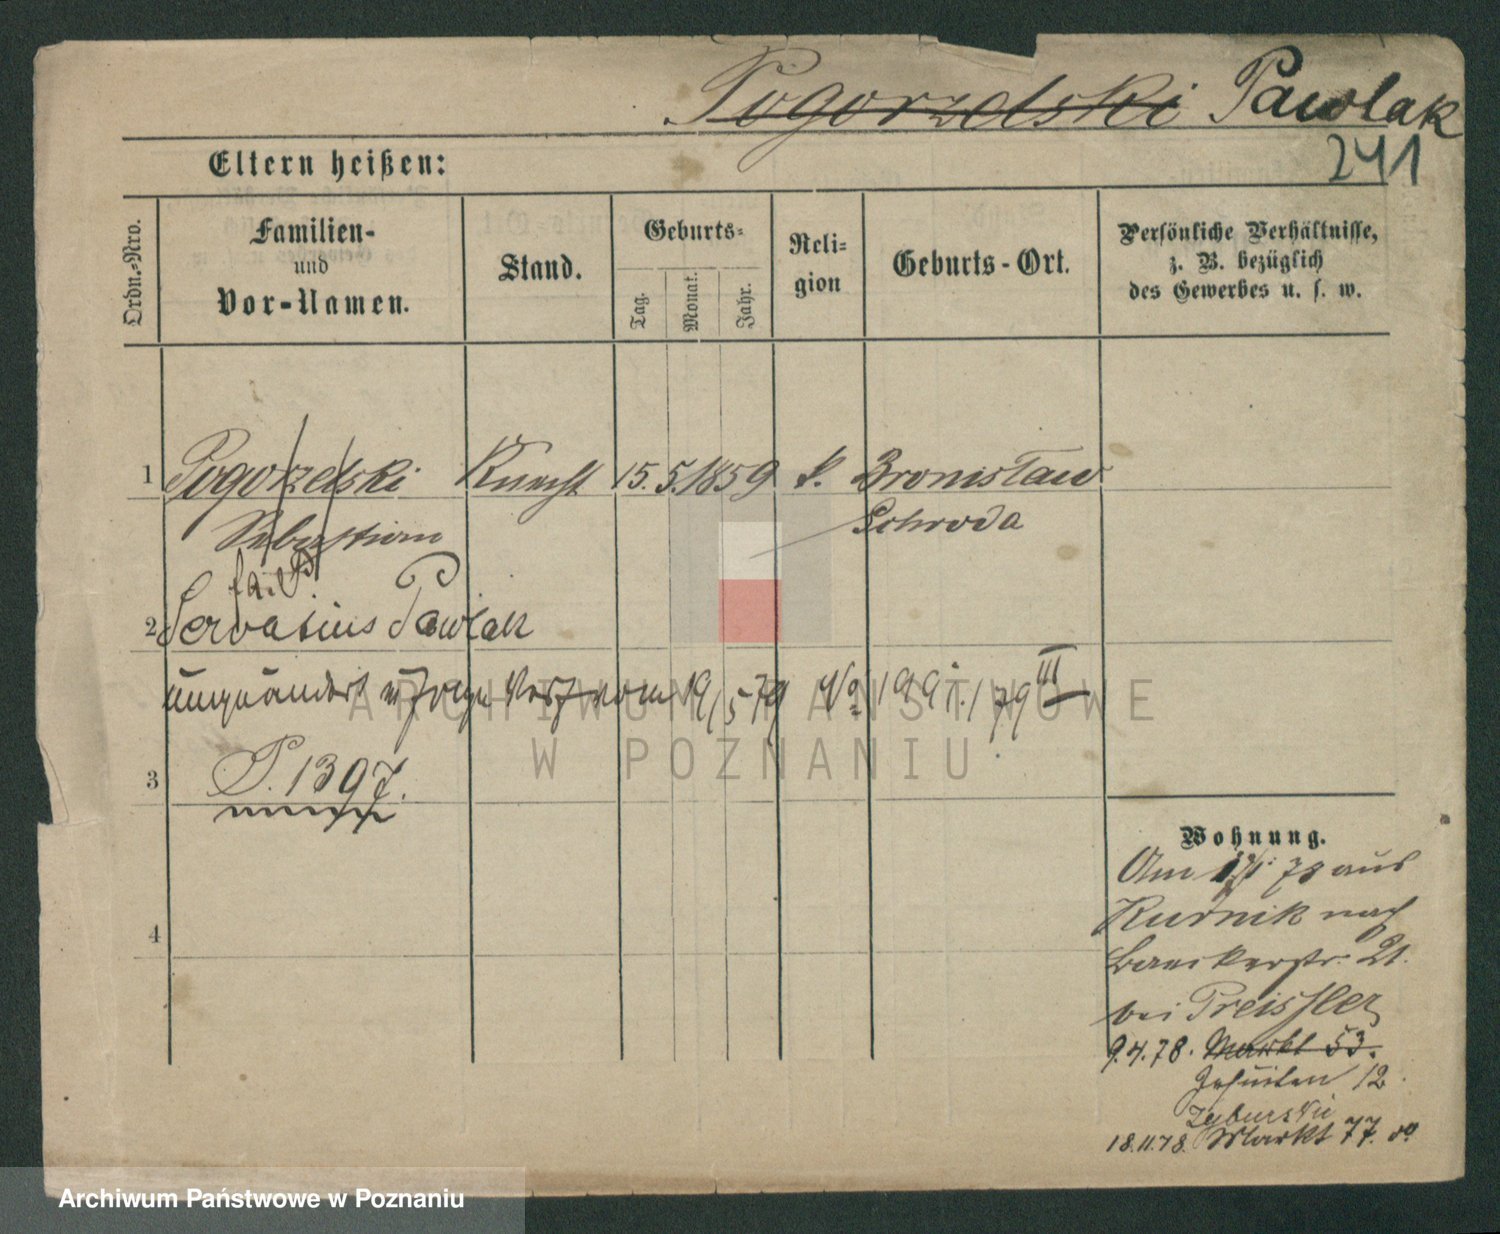 Pogorzelski Pawlak
241
Eltern heißen:
Ordn.-Nro.
Familien-
und
Vor-Namen.
Stand.
Geburts-
Tag.
Monat.
Jahr.
Reli-
gion
Geburts-Ort.
Persönliche Verhältnisse,
z. B. bezüglich
des Gewerbes u. s. w.
1 Pogorzelski Knecht 15. 5. 1859 k. Bronislaw
Sebastian Schroda
2 Servatius Pawlak
umgeändert zufolge Verf. vom 19/5 79 No 1991./79 III
3 P. 1397.
4
Wohnung.
Am 78 aus
Kurnik nach
Baeckerstr. 21.
bei Preissler
9.4.78. Markt 53.
Jesuiten 12
18.11.78. Markt 77.
ARCHIWUM PAŃSTWOWE
W POZNANIU
Archiwum Państwowe w Poznaniu